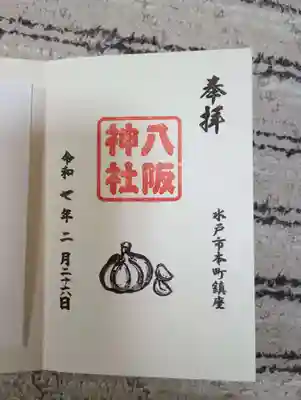 奉拝
八阪
神社
水戸市本町鎮座
令和七年二月二十六日